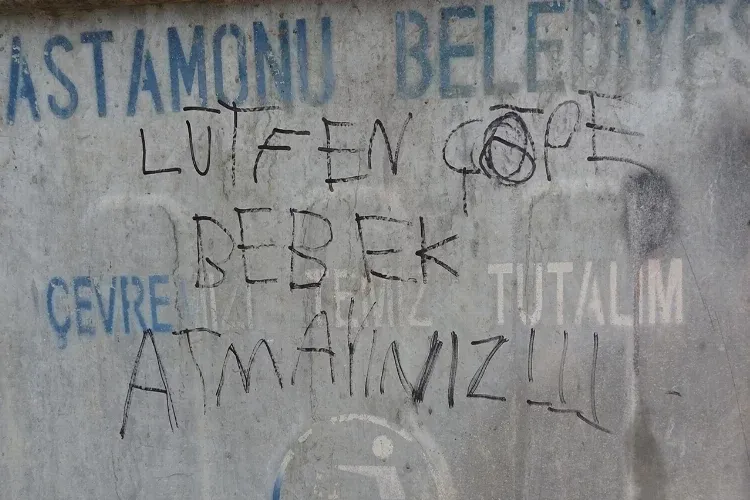 ASTAMONU BELEDİYES
LÜTFEN ÇÖPE
BEBEK
ÇEVREMİZİ TEMİZ TUTALIM
ATMAYINIZ!!!